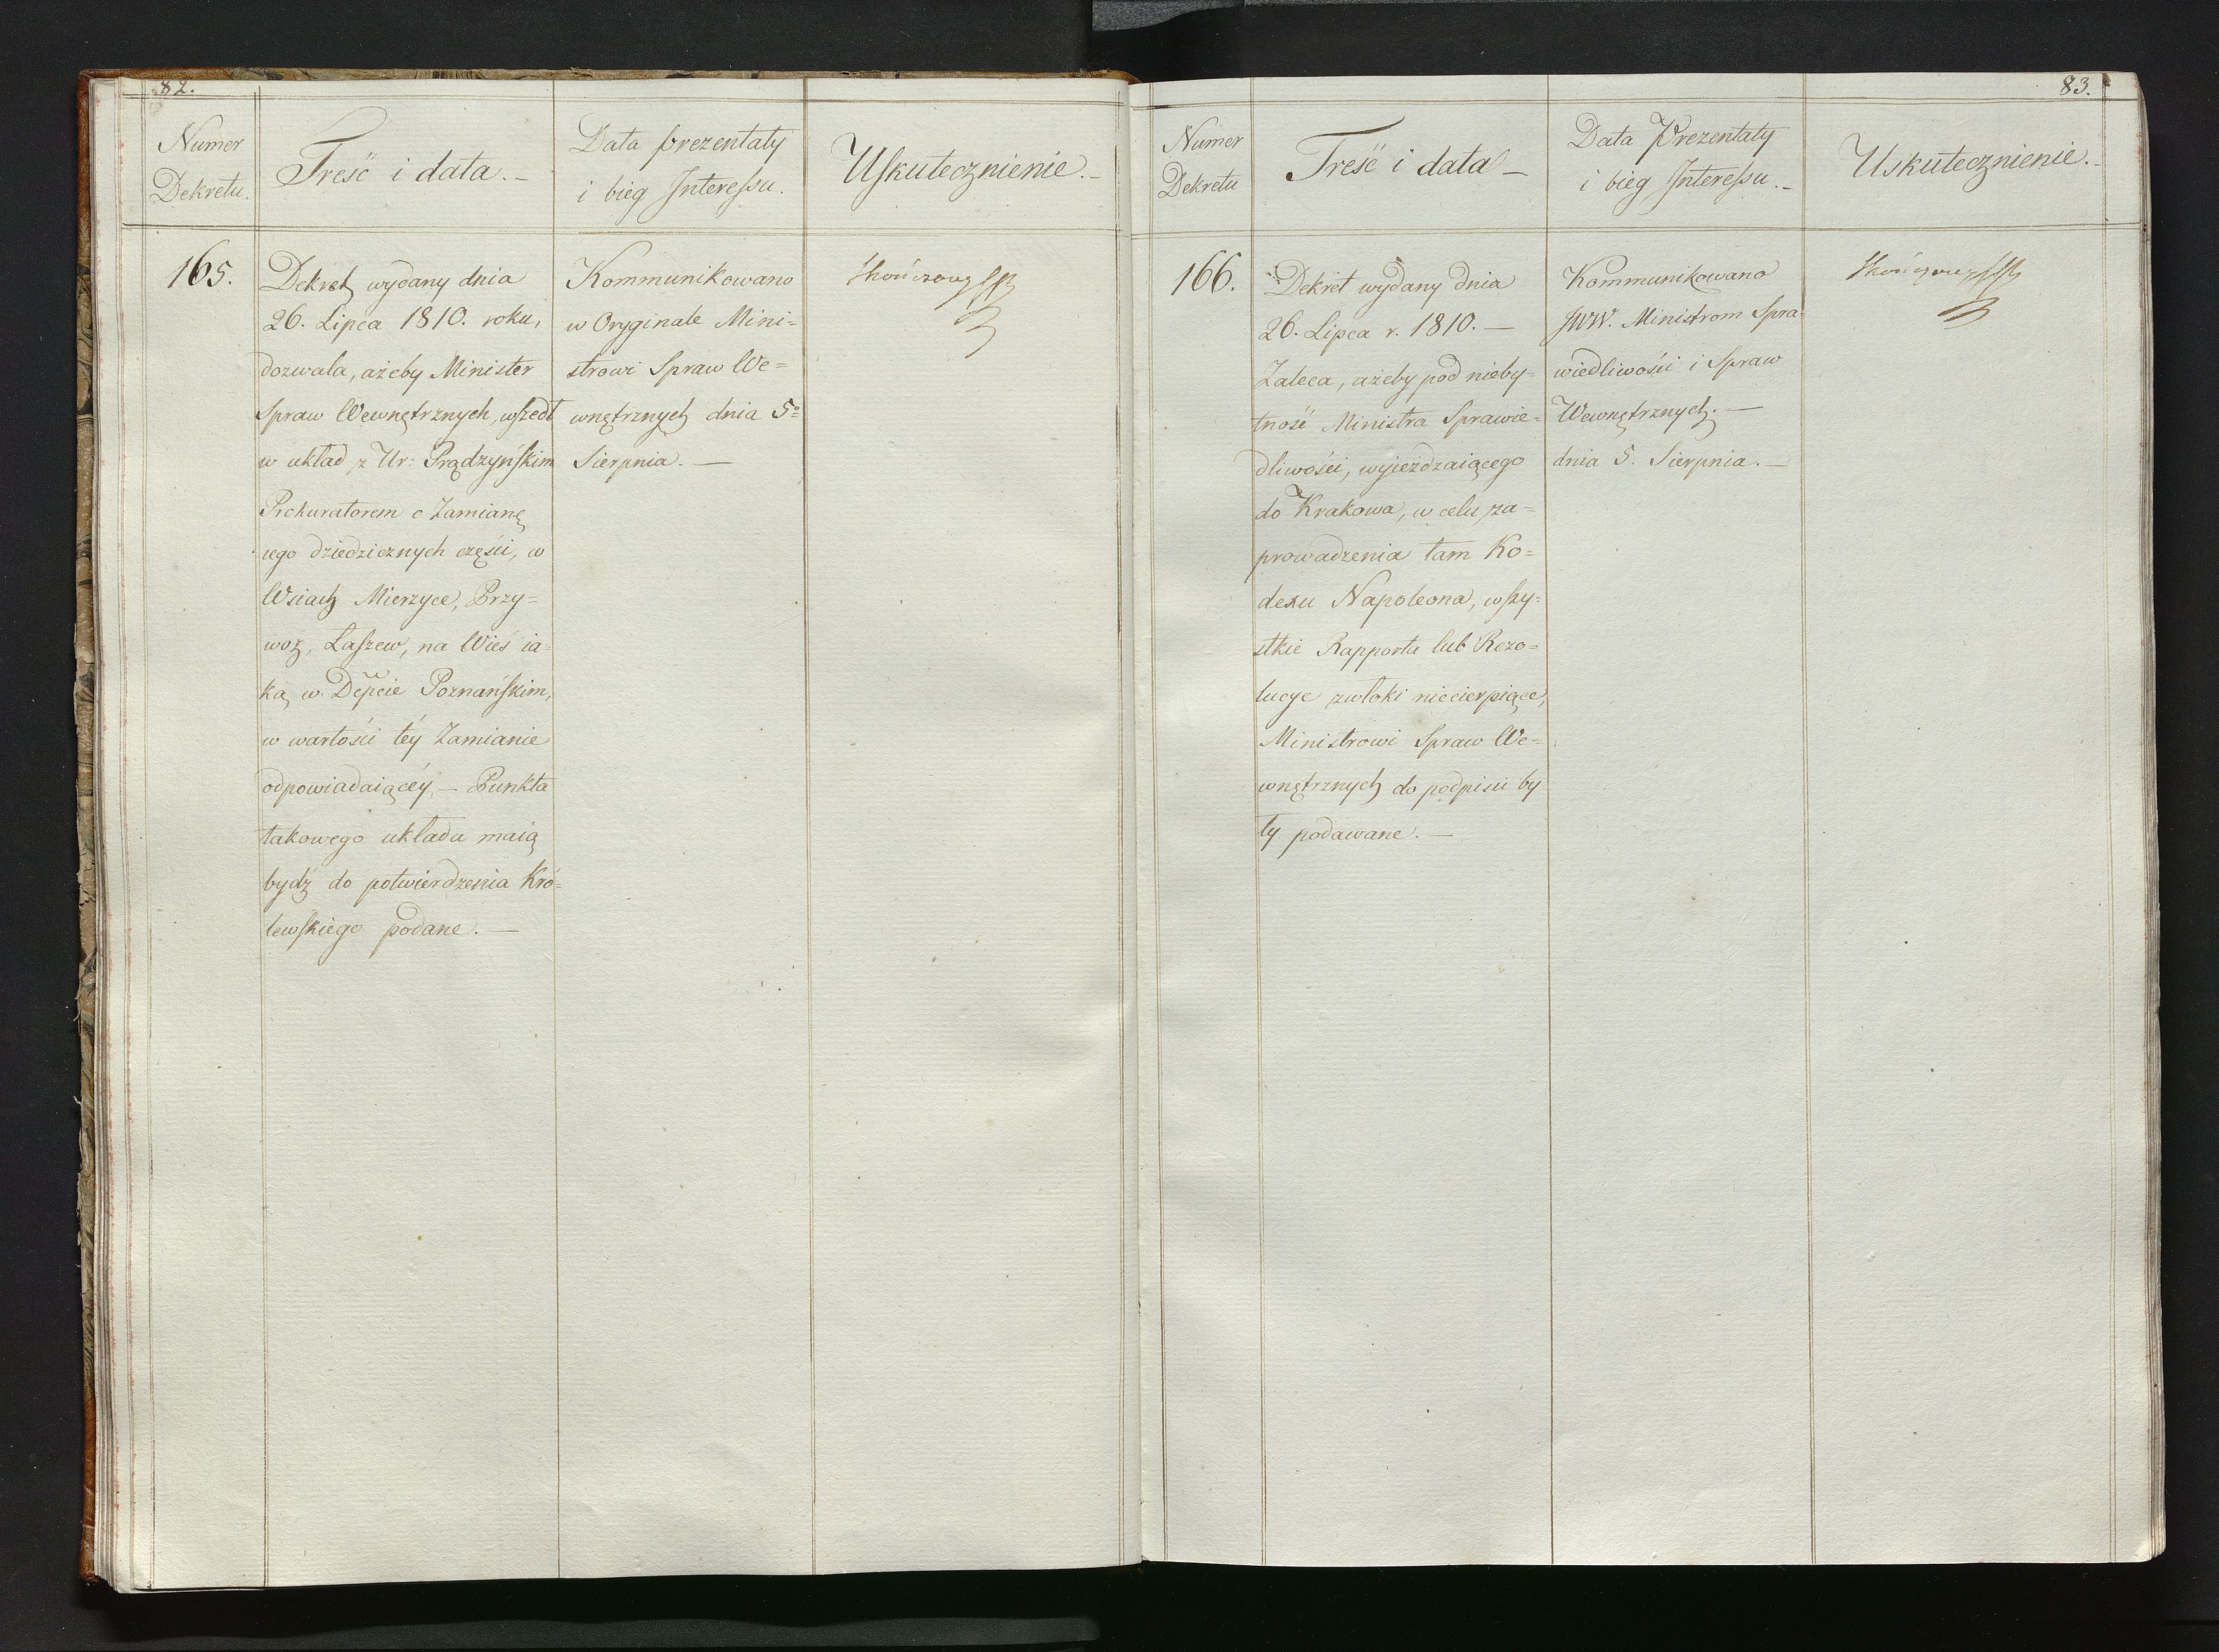 82.
Numer
Dekretu.
Treść i data. –
Data prezentaty
i bieg Interessu.
Uskutecznienie. –
165.
Dekret wydany dnia
26. Lipca 1810. roku,
dozwala, ażeby Minister
Spraw Wewnętrznych, wszedł
w układ z Ur: Prądzyńskim
Prokuratorem o Zamianę
iego dziedzicznych części, w
Wsiach Mierzyce, Przy=
woz, Łaszew, na Wieś ia=
ką w Depcie Poznańskim,
w wartości téy Zamianie
odpowiadaiącéy. – Punkta
takowego układu maią
bydź do potwierdzenia Kró=
lewskiego podane. –
Kommunikowano
w Oryginale Mini=
strowi Spraw We=
wnętrznych dnia 5º
Sierpnia. –
Skończony
83.
Numer
Dekretu
Treść i data –
Data Prezentaty
i bieg Interessu. –
Uskutecznienie. –
166.
Dekret wydany dnia
26. Lipca r. 1810. –
Zaleca, ażeby pod nieby=
tność Ministra Sprawie=
dliwości, wyieżdzaiącego
do Krakowa, w celu za=
prowadzenia tam Ko=
dexu Napoleona, wszy=
stkie Rapporta lub Rezo=
lucye zwłoki niecierpiące,
Ministrowi Spraw We=
wnętrznych do podpisu by
ły podawane. –
Kommunikowano
JWW. Ministrom Spra=
wiedliwości i Spraw
Wewnętrznych. –
dnia 5. Sierpnia. –
Skończony